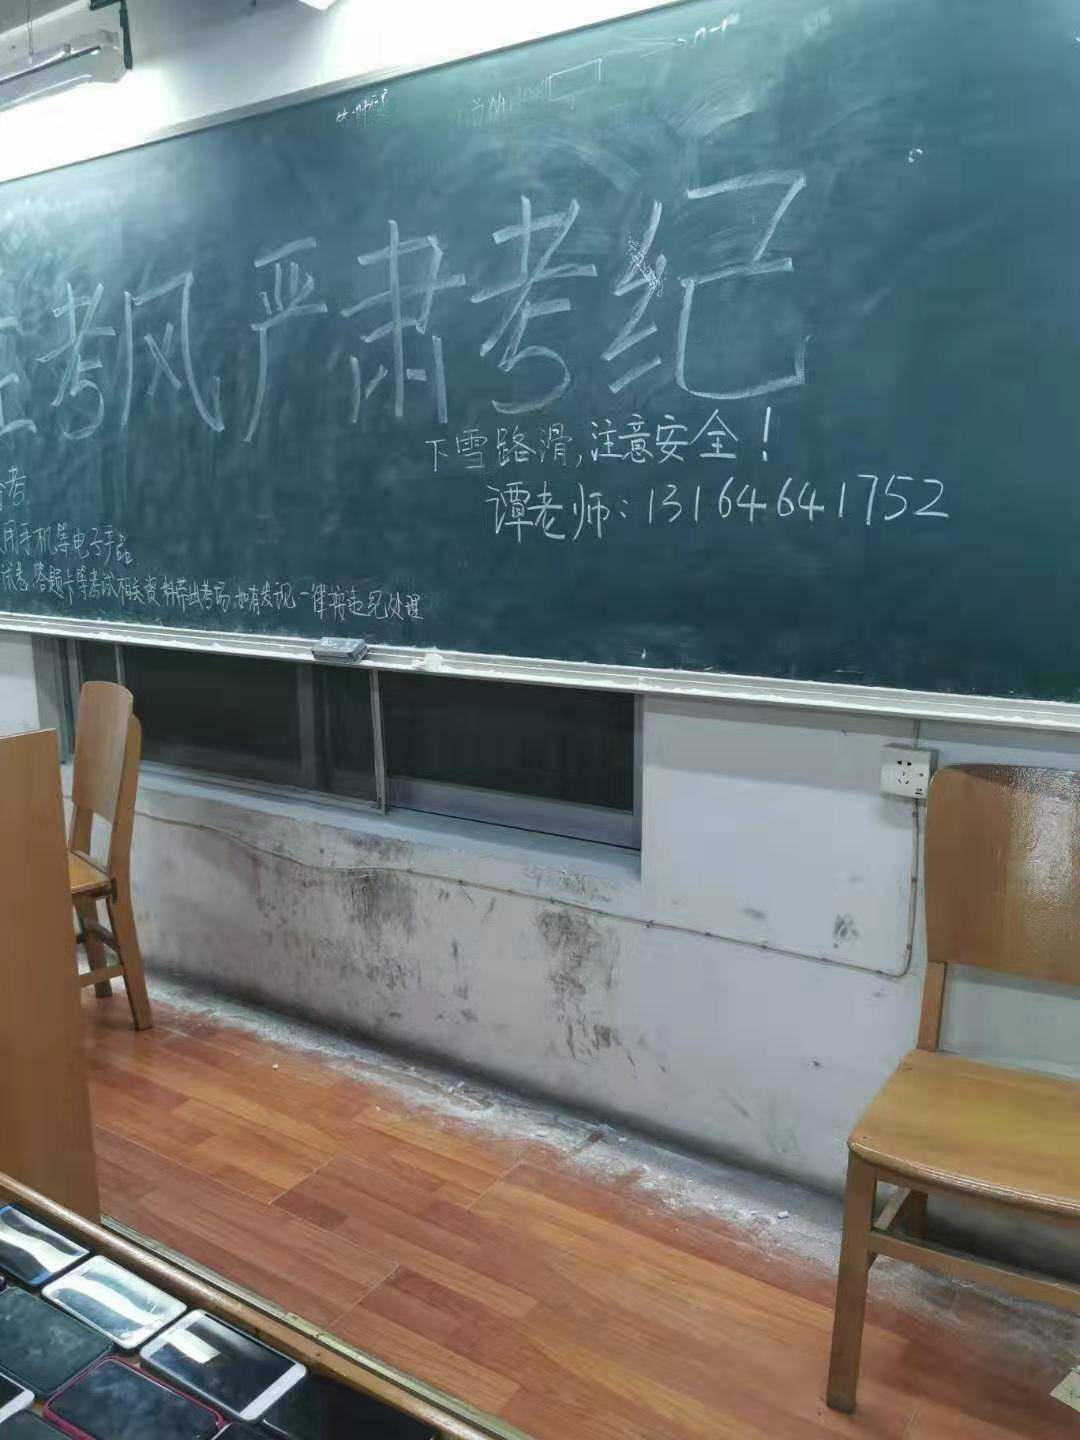 考风 严肃考纪
下雪路滑,注意安全!
谭老师:13164641752
考
用手机等电子产品
试卷、答题卡等考试相关资料带出考场,如有发现,一律按违纪处理